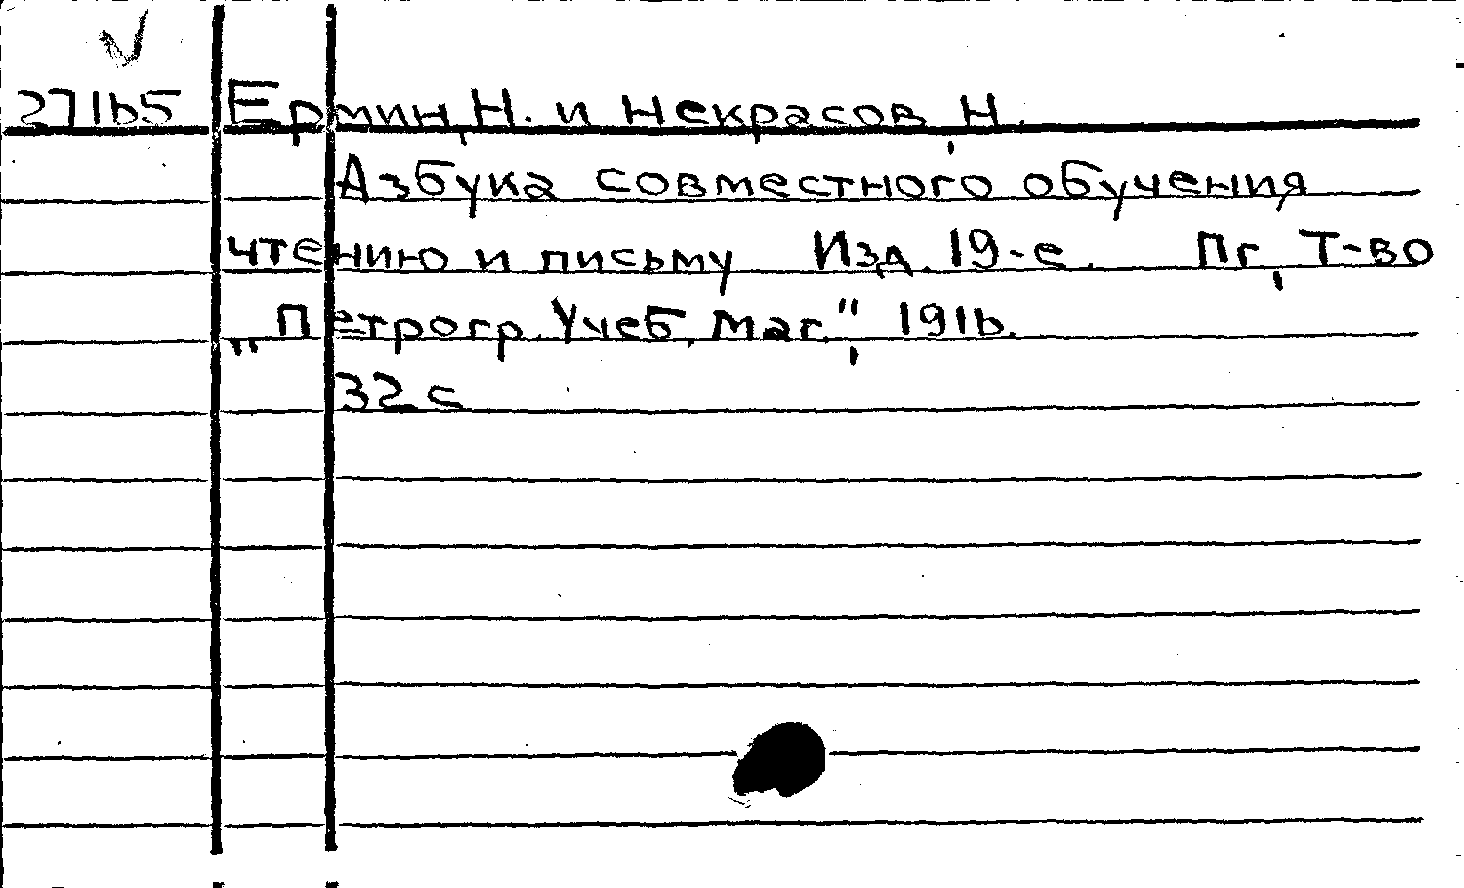 27165 Ермин, Н. и Некрасов, Н.
Азбука совместного обучения
чтению и письму Изд. 19-е. Пг, Т-во
„Петрогр. Учеб. маг.", 1916.
32 с